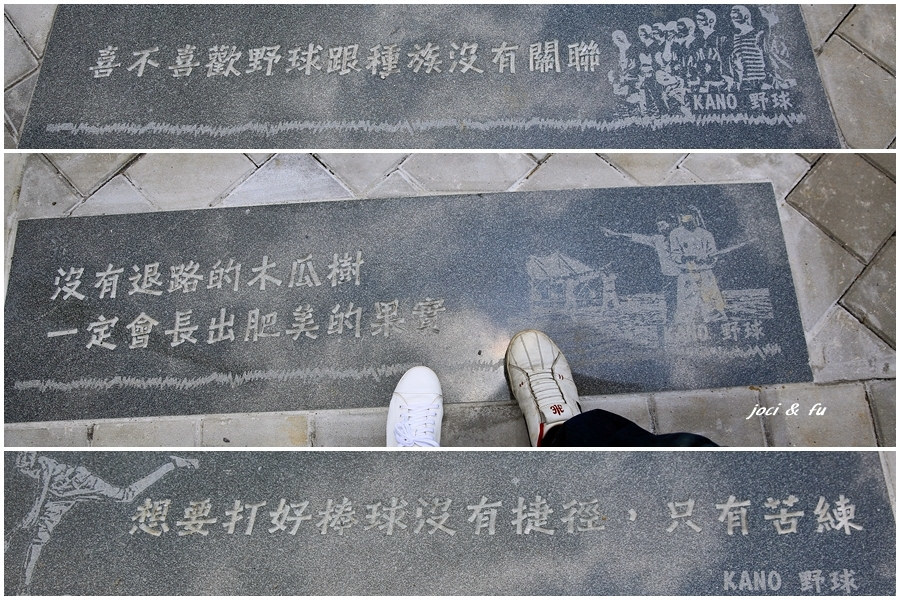 喜不喜歡野球跟種族沒有關聯
KANO 野球
沒有退路的木瓜樹
一定會長出肥美的果實
KANO 野球
joci & fu
想要打好棒球沒有捷徑，只有苦練
KANO 野球